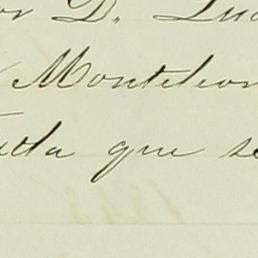 or D. Luc
Monteleon
uda que se